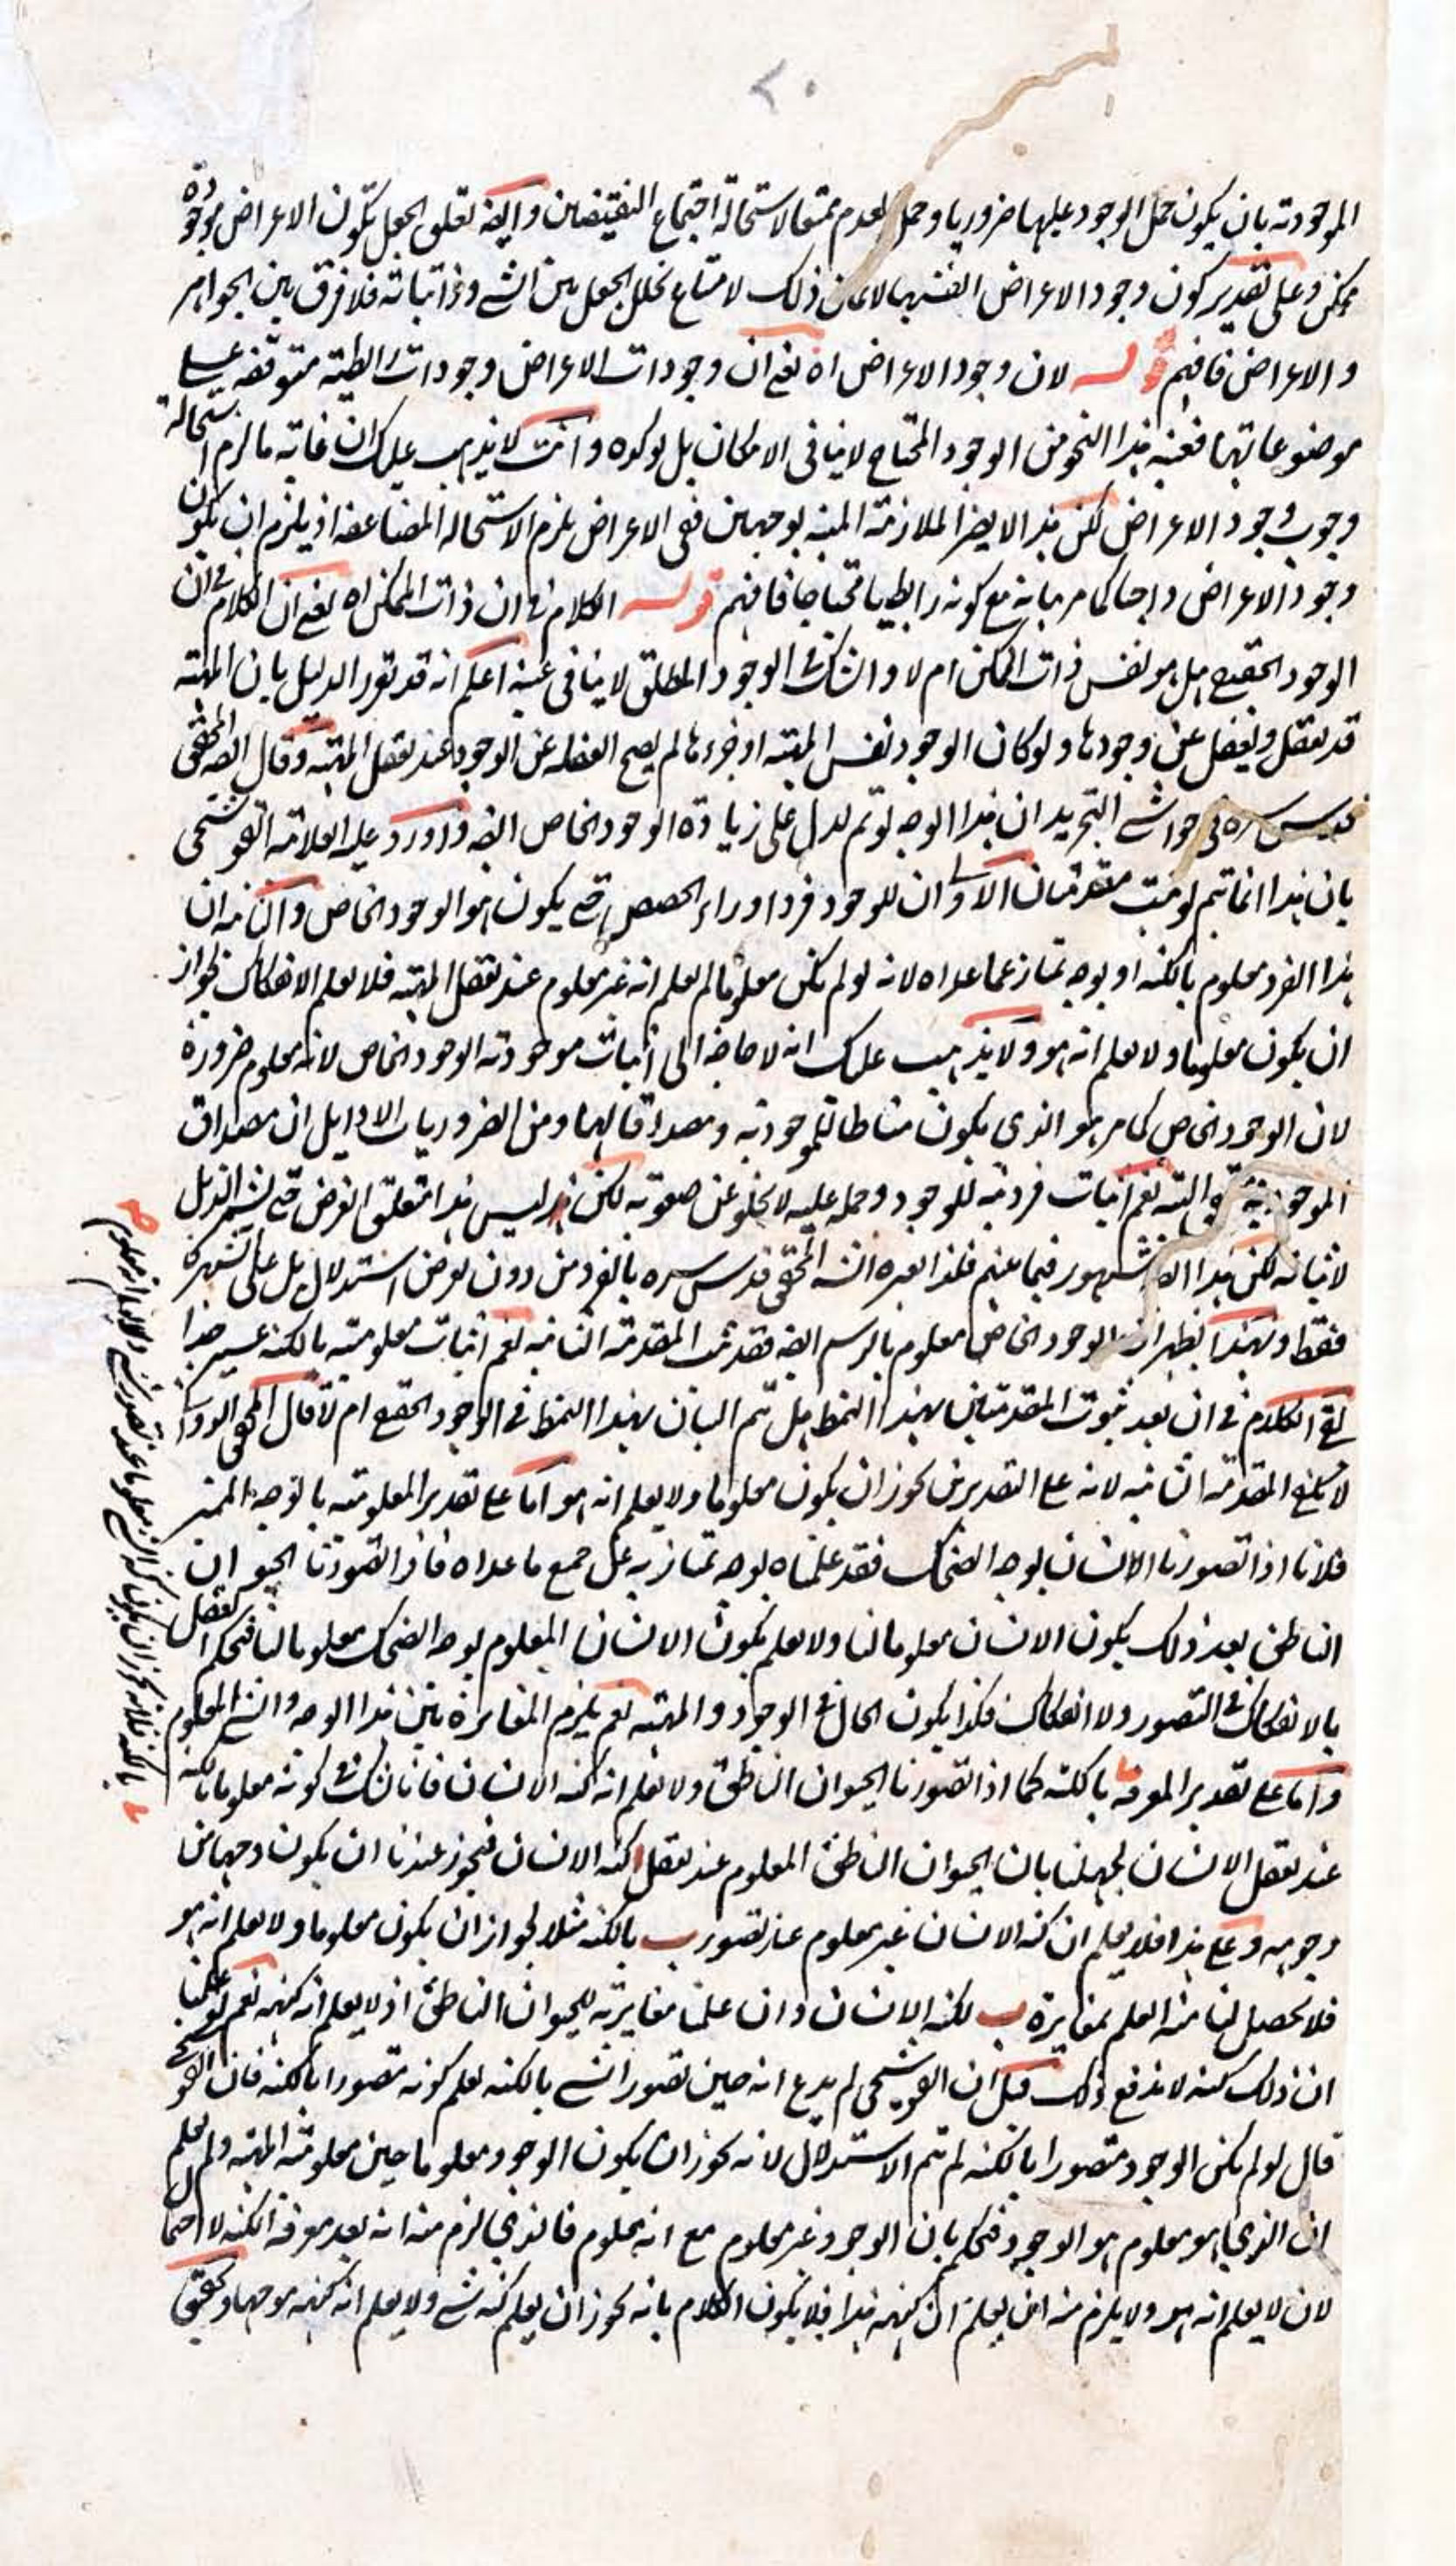 ٢٠
الموجودته بان يكون حمل الوجود عليها ضروريا وحمل العدم ممتنعا لاستحالة اجتماع النقيضين وايضه تعلق الجعل بكون الاعراض موجودة
ممكن وعلى تقدير كون وجود الاعراض انفسها لا يمكن ذلك لامتناع تخلل الجعل بين الشے وذاتياته فلا فرق بين الجواهر
والاعراض فافهم قوله لان وجود الاعراض اه يعنے ان وجودات الاعراض وجودات رابطية متوقفه علے
موضوعاتها فعينية هذا النحو من الوجود المحتاج لا ينافى الامكان بل يوكده وانت لا يذهب عليك ان غاية ما لزم استحالة
وجوب وجود الاعراض لكن هذا لا يضر الملازمة المبينة بوجهين ففى الاعراض يلزم الاستحاله المضاعفه اذ يلزم ان يكون
وجود الاعراض واجبا كما مر بيانه مع كونه رابطيا محتاجا فافهم قوله الكلام فے ان ذات الممكن اه يعنے ان الكلام فے ان
الوجود الحقيقے هل هو نفس ذات الممكن ام لا والشك فے الوجود المطلق لا ينافى عينية اعلم انه قد تقرر الدليل بان المهية
قد تعقل ويغفل عن وجودها ولو كان الوجود نفس المهية او جزءها لم يصح الغفله عن الوجود عند تعقل المهية وقال السيد المحقق
قدس سره فى حواشے التجريد ان هذا الوجه لو تم لدل على زيادة الوجود الخاص ايضه واورد عليه العلامة القوشجى
بان هذا انما يتم لو ثبت مقدمتان الاولے ان للوجود فردا وراء الحصص حتے يكون هو الوجود الخاص والثانية ان
هذا الفرد معلوم بالكنه او بوجه يمتاز عما عداه لانه لو لم يكن معلوما لم يعلم انه غير معلوم عند تعقل المهية فلا يعلم الانفكاك لجواز
ان يكون معلوما ولا يعلم انه هو ولا يذهب عليك انه لا حاجة الى اثبات موجودية الوجود الخاص لانه معلوم ضرورة
لان الوجود الخاص كما مر هو الذى يكون مناطا للموجودية ومصداقا لها ومن الضروريات الاوايل ان مصداق
الموجودية البته نعم اثبات فردية للوجود وحمله عليه لا يخلو عن صعوبة لكن ليس هذا متعلق الغرض حتے الدليل
لاثباته لكن هذا المشهور فيما بينهم فلذا العبره السيد المحقق قدس سره بالفرد من دون تعرض استدلال بل على الشهرة
فقط وبهذا يظهر ان الوجود الخاص معلوم بالرسم ايضه فقد ثبت المقدمة الثانية نعم اثبات معلومية بالكنه عسير جدا
بقے الكلام فے ان بعد ثبوت المقدمتين بهذا النمط هل يتم البيان بهذا النمط فے الوجود الحقيقے ام لا قال المحقق الدوانى
لا يكفے المقدمة الثانية لانه علے التقديرين يجوز ان يكون معلوما ولا يعلم انه هو اما علے تقدير المعلومية بالوجه المميز
فلانا اذا تصورنا الانسان بوجه الضحك فقد علمناه بوجه يمتاز به عن جميع ما عداه فاذا تصورنا الحيوان
الناطق بعد ذلك يكون الانسان معلوما لنا ولا يعلم بكون الانسان المعلوم بوجه الضحك معلوما لنا فيحكم العقل
بالانفكاك فے التصور ولا انفكاك فكذا يكون الحال فے الوجود والمهية نعم يلزم المغايرة بين هذا الوجه والشے المعلوم
واما علے تقدير المعرفه بالكنه كما اذا تصورنا الحيوان الناطق ولا نعلم انه كنه الانسان فانا نشك فے كونه معلوما بالكنه
عند تعقل الانسان لجهلنا بان الحيوان الناطق المعلوم عند تعقل كنه الانسان فيجوز عندنا ان يكون وجها من
وجوهه وعلے هذا فلا يعلم ان كنه الانسان غير معلوم عند تصور ب بالكنه مثلا لجواز ان يكون معلوما ولا يعلم انه هو
فلا يحصل لنا منه العلم بمغايرة ب لكنه الانسان وان علمنا مغايرته للحيوان الناطق اذ لا يعلم انه كنهه نعم لو علمنا
ان ذلك كنهه لاندفع ذلك قيل ان القوشجى لم يدع انه حين تصور الشے بالكنه يعلم كونه متصورا بالكنه فان القوشجے
قال لو لم يكن الوجود متصورا بالكنه لم يتم الاستدلال لانه يجوز ان يكون الوجود معلوما حين معلومية المهية ولم يعلم
ان الذى هو معلوم هو الوجود فيحكم بان الوجود غير معلوم مع انه معلوم فالذى لزم منه انه بعد معرفة الكنه لا احتمال
لان لا يعلم انه هو ولا يلزم منه ان يعلم ان كنهه هذا فلا يكون الكلام بانه يجوز ان يعلم كنه شے ولا يعلم انه كنهه موجها وتحقيق